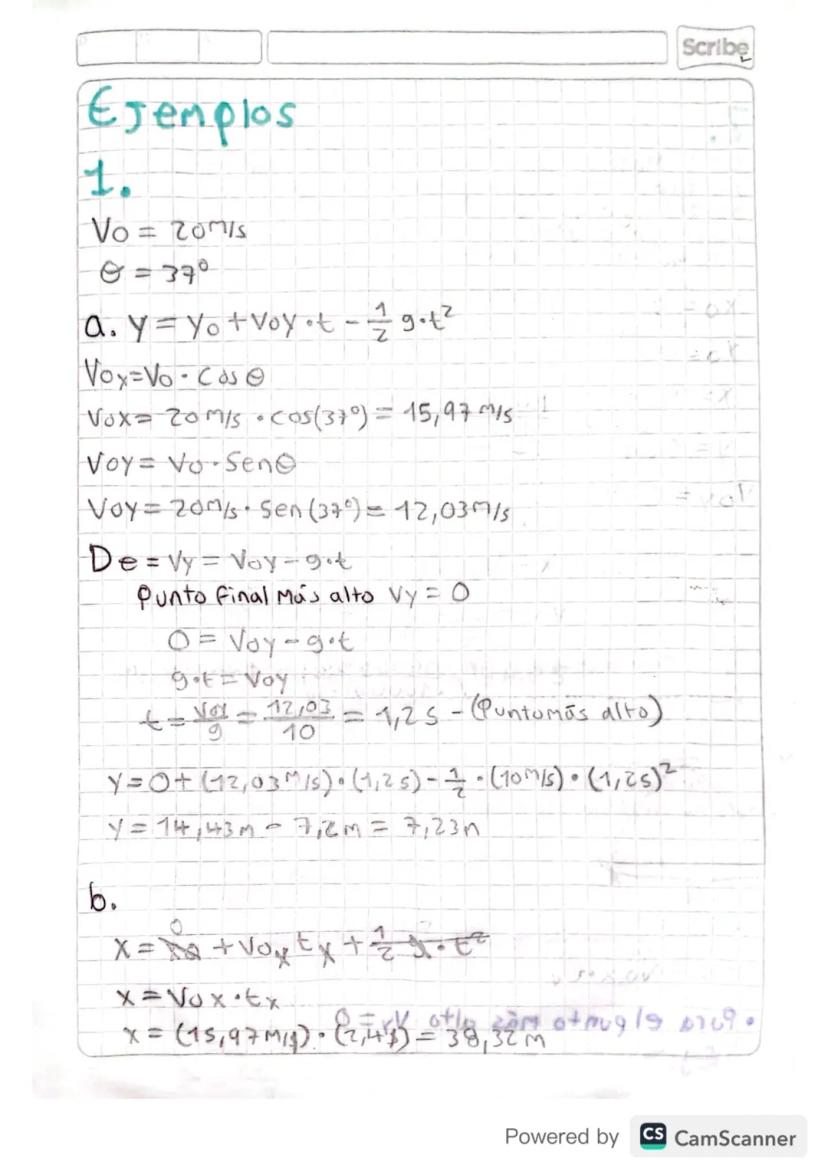 Scribe
Ejemplos
1.
Vo = 20m/s
θ = 37°
a. y = yo + voy · t - 1/2 g·t²
Vox = Vo · Cos θ
Vox = 20 m/s · cos(37°) = 15,97 m/s
Voy = Vo · Senθ
Voy = 20m/s · Sen (37°) = 12,03m/s
De = Vy = Voy - g·t
Punto final más alto Vy = 0
0 = Voy - g·t
g·t = Voy
t = Voy/g = 12,03/10 = 1,2 s - (Punto más alto)
y = 0 + (12,03 m/s) · (1,2 s) - 1/2 · (10 m/s) · (1,2s)²
y = 14,43 m - 7,2 m = 7,23m
b.
0
x = xo + Vox tx + 1/2 g · t²
x = Vox · tx
x = (15,97 m/s) · (2,4s) = 38,32 m
Powered by CS CamScanner